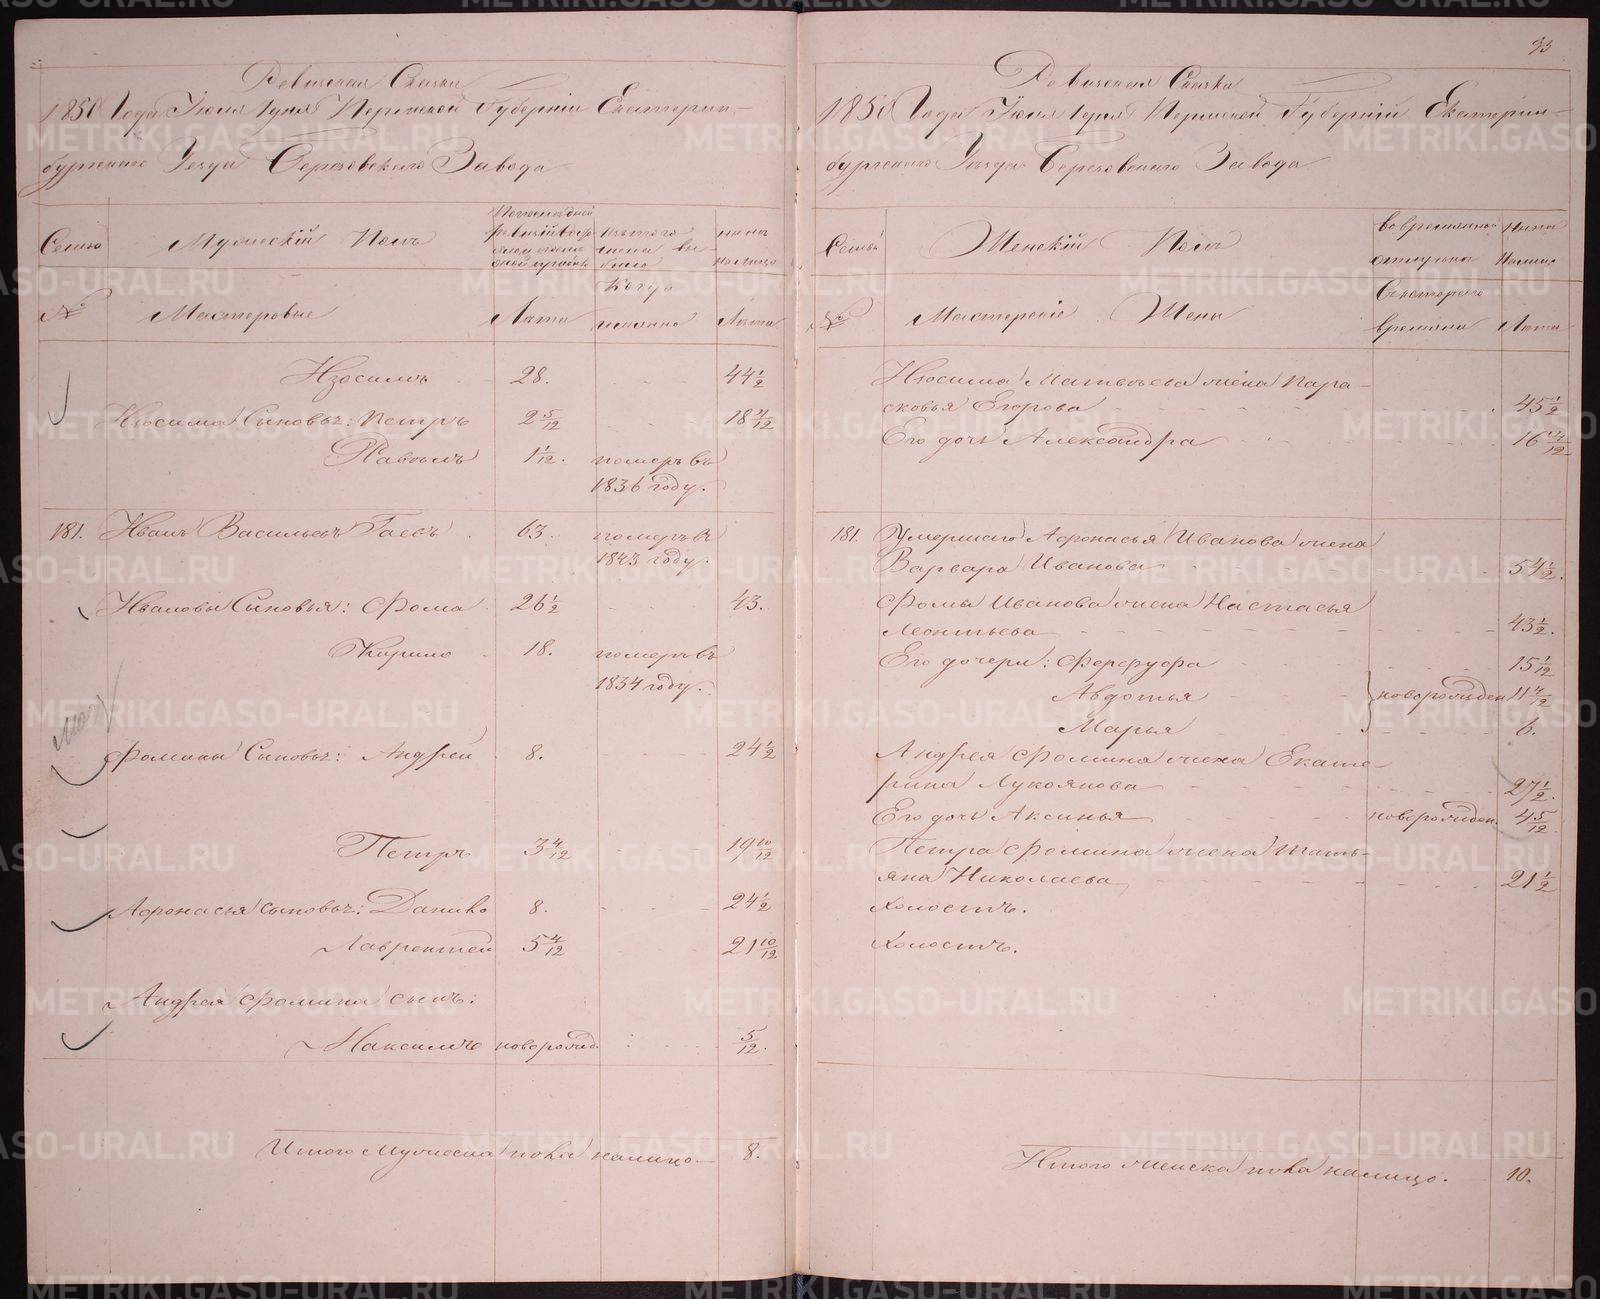 Ревизская Сказка
1850 Года Июня 1 дня Пермской Губернiи Екатерин-
бургскаго Уезда Березовскаго Завода
Семья
Мужескiй Полъ
По последней ревизiи
изъ того числа вы-
было
ныне
на лицо
Когда
№
Мастеровые
Лета
именно
Лета
Изосимъ 28. 44 1/2
Изосима Сыновья: Петръ 2 5/12
Павелъ 1 1/12. померъ въ
1836 году.
181. Иванъ Васильевъ Гаевъ 63. померъ въ
1843 году.
Ивановы Сыновья: Фома 26 1/2 43.
Кирило 18. померъ въ
1834 году.
Фомины Сыновья: Андрей 8. 24 1/2
Петръ 3 4/12 19 10/12
Афонасья сыновья: Данило 8. 24 1/2
Лаврентей 5 4/12 21 10/12
Андрея Фомина сынъ:
Максимъ новорожд. 5/12.
Итого Мужеска пола налицо 8.
93
Ревизская Сказка
1850 Года Июня 1 дня Пермской Губернiй Екатерин-
бургскаго Уезда Березовскаго Завода
Семья
Женскiй Полъ
во временной
отлучке
Ныне
на лицо
Съ котораго
№
Мастерскiе Жены
времяни
Лета
Изосима Матвеева жена Пара-
сковья Егорова 45 1/2
Его дочь Александра 16
181. Умершаго Афонасья Иванова жена
Варвара Иванова 54 1/2.
Фомы Иванова жена Настасья
Леонтьева 43 1/2.
Его дочери: Федора 15 1/12
Авдотья новорожден 11 4/12
Марья 6.
Андрея Фомина жена Екате-
рина Лукоянова 27 1/2.
Его дочь Аксинья новорожден. 4 5/12
Петра Фомина жена Тать-
яна Николаева 21 1/2
Холостъ.
Холостъ.
Итого женска пола налицо. 10.
METRIKI.GASO-URAL.RU